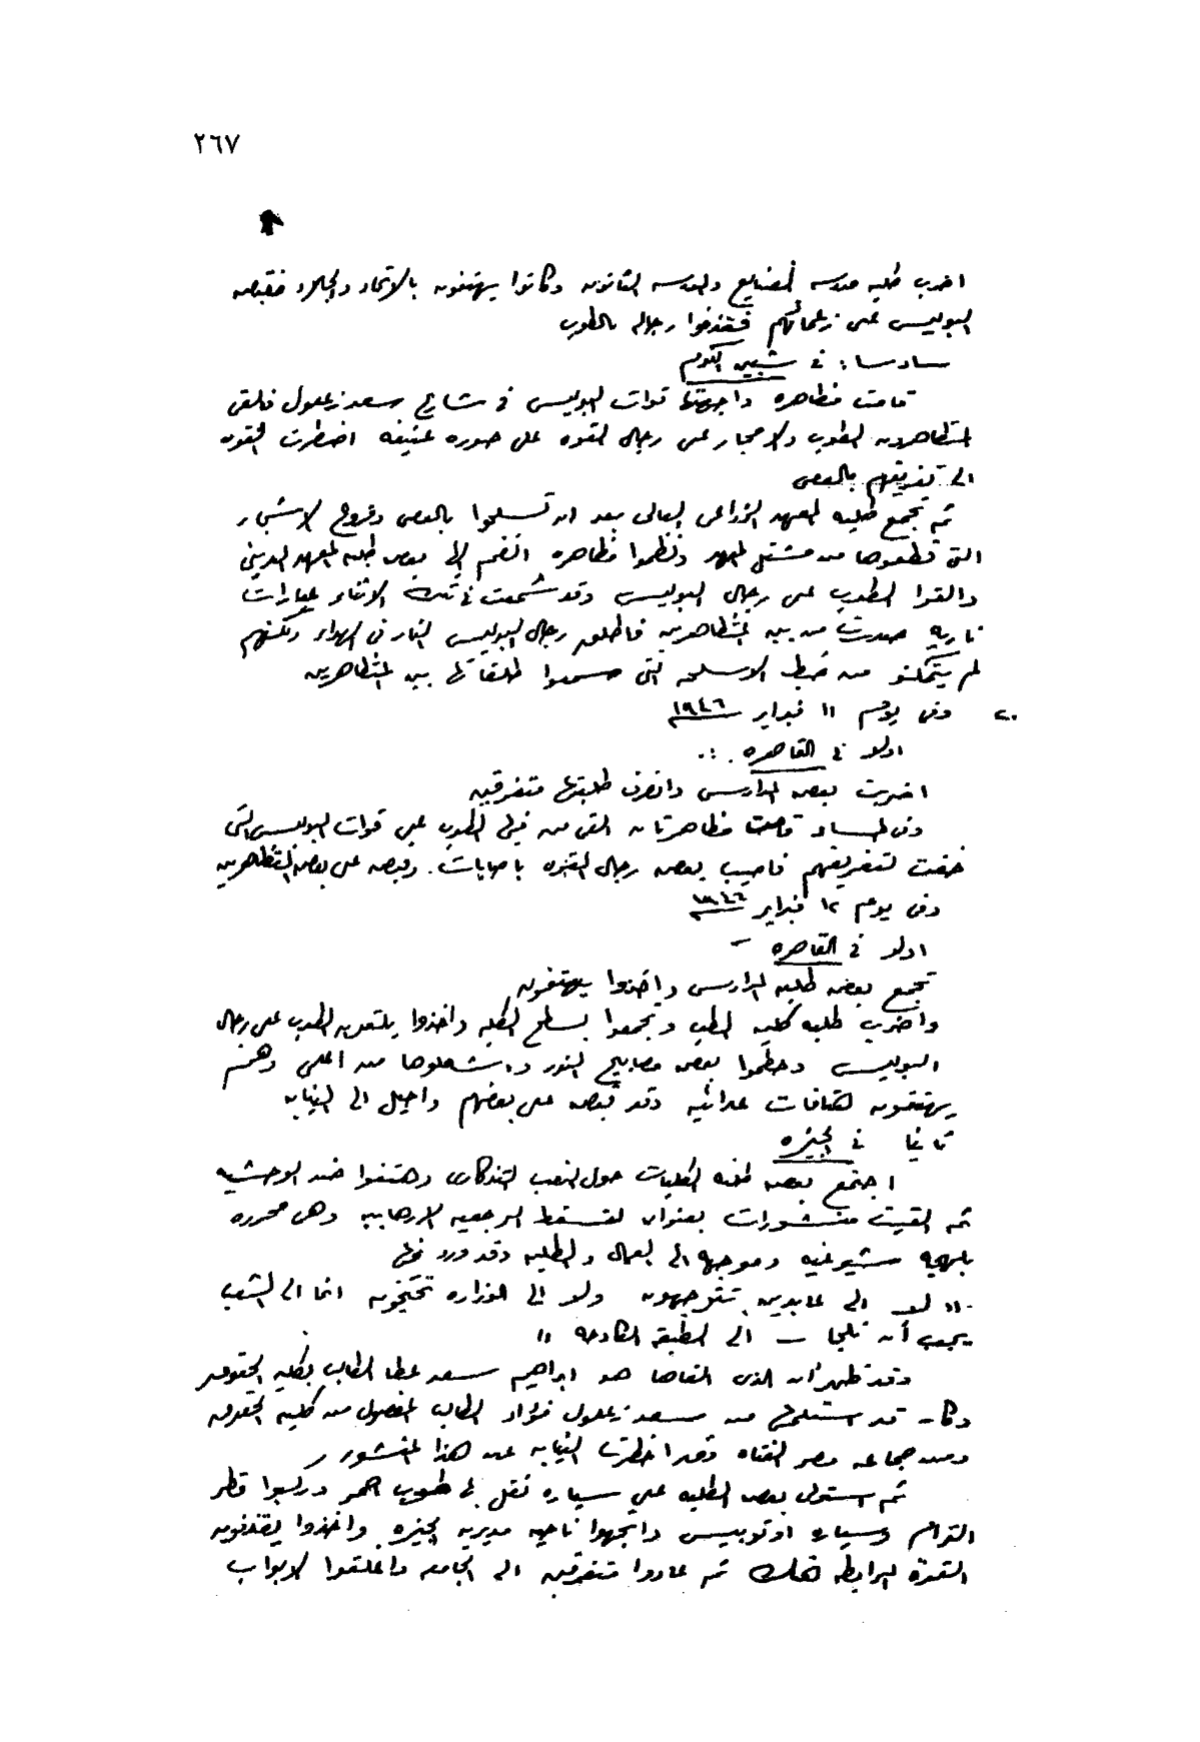 ٢٦٧
اضرب طلبه مدرسه الصنايع والمدرسه الثانويه وكانوا يهتفون بالاتحاد والجلاء فقبض
البوليس على زعمائهم فقذفوا رجاله بالطوب
سادسا: في شبين الكوم
قامت مظاهره واجهتها قوات البوليس في شارع سعد زغلول فالقى
المتظاهرون الطوب والاحجار على رجال القوه على صوره عنيفه اضطرت القوه
الى تفريقهم بالعصى
ثم تجمع طلبه المعهد الزراعى العالى بعد ان تسلحوا بالعصى وفروع الاشجار
التى قطعوها من مشتل المعهد ونظموا مظاهره انضم إليها بعض طلبه المعهد الدينى
والقوا الطوب على رجال البوليس وقد سُمعت في تلك الاثناء عيارات
ناريه صدرت من بين المتظاهرين فاطلق رجال البوليس النار فى الهواء ولكنهم
لم يتمكنو من ضبط الاسلحه التى سمعوا طلقاتها بين المتظاهرين
٢٠ وفى يوم ١١ فبراير ١٩٤٦
اولا في القاهره :.
اضربت بعض المدارس وانصرف طلبتها متفرقين
وفى المساء قامت مظاهرتان القى من فيها الطوب على قوات البوليس التى
خفت لتفريقهم فاصيب بعض رجال القوه باصابات. وقبض على بعض المتظاهرين
وفى يوم ١٢ فبراير ١٩٤٦
اولا في القاهره –
تجمع بعض طلبه المدارس وأخذوا يهتفون
واضرب طلبه كليه الطب وتجمعوا بسطح الكليه واخذوا يلقون الطوب على رجال
البوليس وحطموا بعض مصابيح النور واشعلوها من اعلى وهم
يهتفون هتافات عدائيه وقد قبض على بعضهم واحيل الى النيابه
ثانيا في الجيزه
اجتمع بعض طلبه الكليات حول النصب التذكارى وهتفوا ضد الوحشيه
ثم القيت منشورات بعنوان لتسقط الرجعيه الارهابيه وهى محرره
بلهجه شيوعيه وموجهه الى العمال والطلبه وقد ورد فيها
" لا الى عابدين تتوجهون ولا الى الوزاره تحتجون انما الى الشعب
يجب أن نلجأ – الى الطبقه الكادحه "
وقد ظهر ان الذى القاها هو ابراهيم سعد عطا الطالب بكليه الحقوق
وكان قد استلمها من سعد زغلول فؤاد الطالب المفصول من كليه الحقوق
ومن جماعه مصر الفتاه وقد اخطرت النيابه عن هذا المنشور
ثم استولى بعض الطلبه على سياره نقل بها طوب احمر وركبوا قطر
الترام وسياره اوتوبيس واتجهوا ناحيه مديريه الجيزه واخذوا يقذفون
القوة المرابطه هناك ثم عادوا متفرقين الى الجامعه واغلقوا الابواب